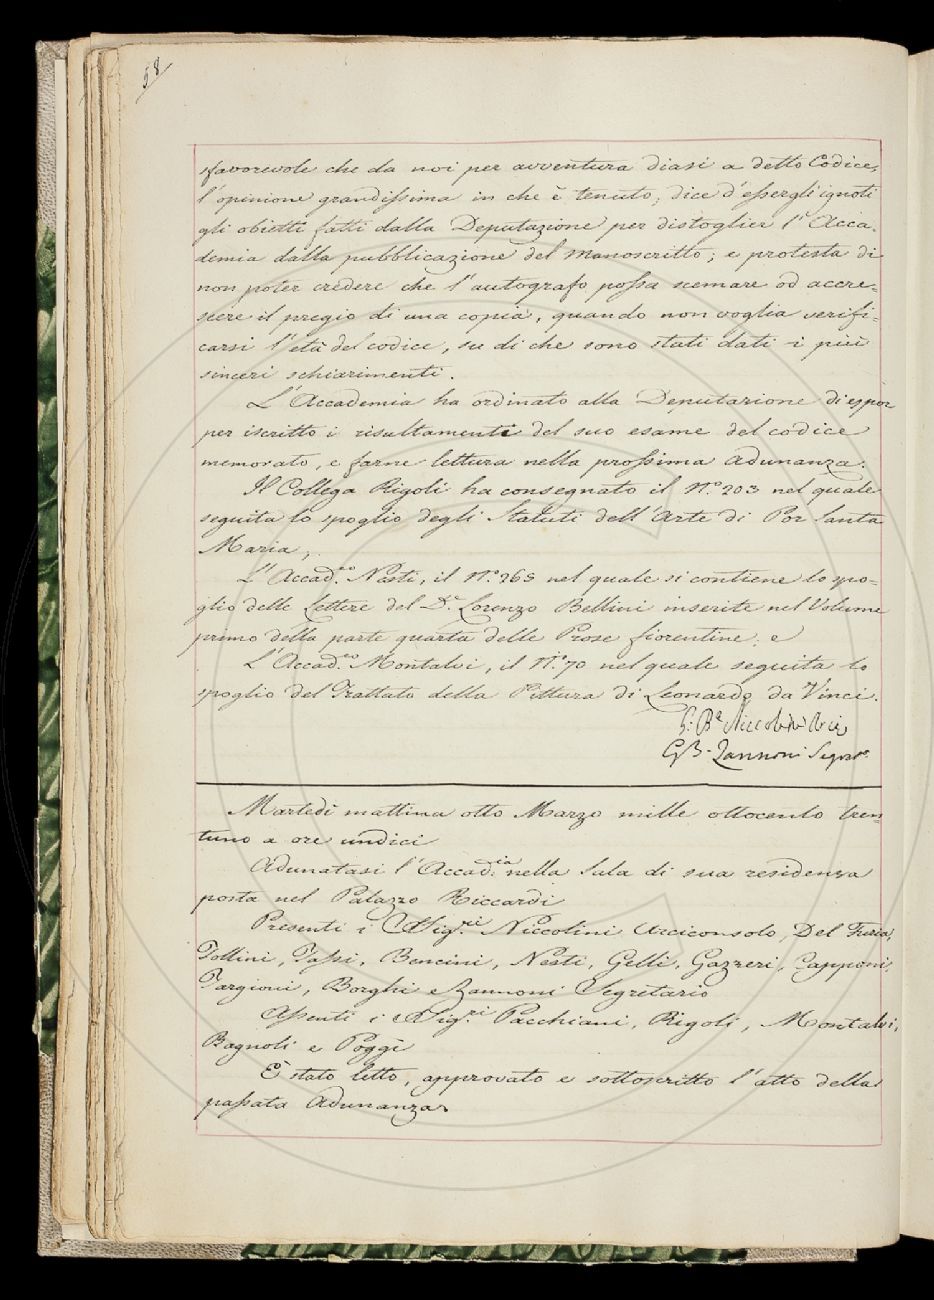 58
sfavorevole che da noi per avventura diasi a detto Codice,
l'opinione grandissima in che è tenuto; dice d'essergli ignoti
gli obietti fatti dalla Deputazione per distoglier l'Acca-
demia dalla pubblicazione del Manoscritto; e protesta di
non poter credere che l'autografo possa scemare od accre-
scere il pregio di una copia, quando non voglia verifi-
carsi l'età del codice, su di che sono stati dati i più
sinceri schiarimenti.
L'Accademia ha ordinato alla Deputazione di espor
per iscritto i risultamenti del suo esame del codice
memorato, e farne lettura nella prossima Adunanza.
Il Collega Rigoli ha consegnato il N.° 203 nel quale
seguita lo spoglio degli Statuti dell'Arte di Por Santa
Maria,
L'Accad.co Nesti, il N.° 265 nel quale si contiene lo spo-
glio delle Lettere del D.r Lorenzo Bellini inserite nel Volume
primo della parte quarta delle Prose fiorentine; e
L'Accad.co Montalvi, il N.° 70 nel quale seguita lo
spoglio del Trattato della Pittura di Leonardo da Vinci.
G. Ba Niccolini Arci
GB. Zannoni Segret.o
Martedì mattina otto Marzo mille ottocento tren-
tuno a ore undici
Adunatasi l'Accad.ia nella Sala di sua residenza
posta nel Palazzo Riccardi
Presenti i SSig.ri Niccolini Arciconsolo, Del Furia,
Follini, Tassi, Bencini, Nesti, Gelli, Gazzeri, Capponi,
Targioni, Borghi e Zannoni Segretario
Assenti i SSig.ri Pacchiani, Rigoli, Montalvi,
Bagnoli e Poggi
È stato letto, approvato e sottoscritto l'atto della
passata Adunanza